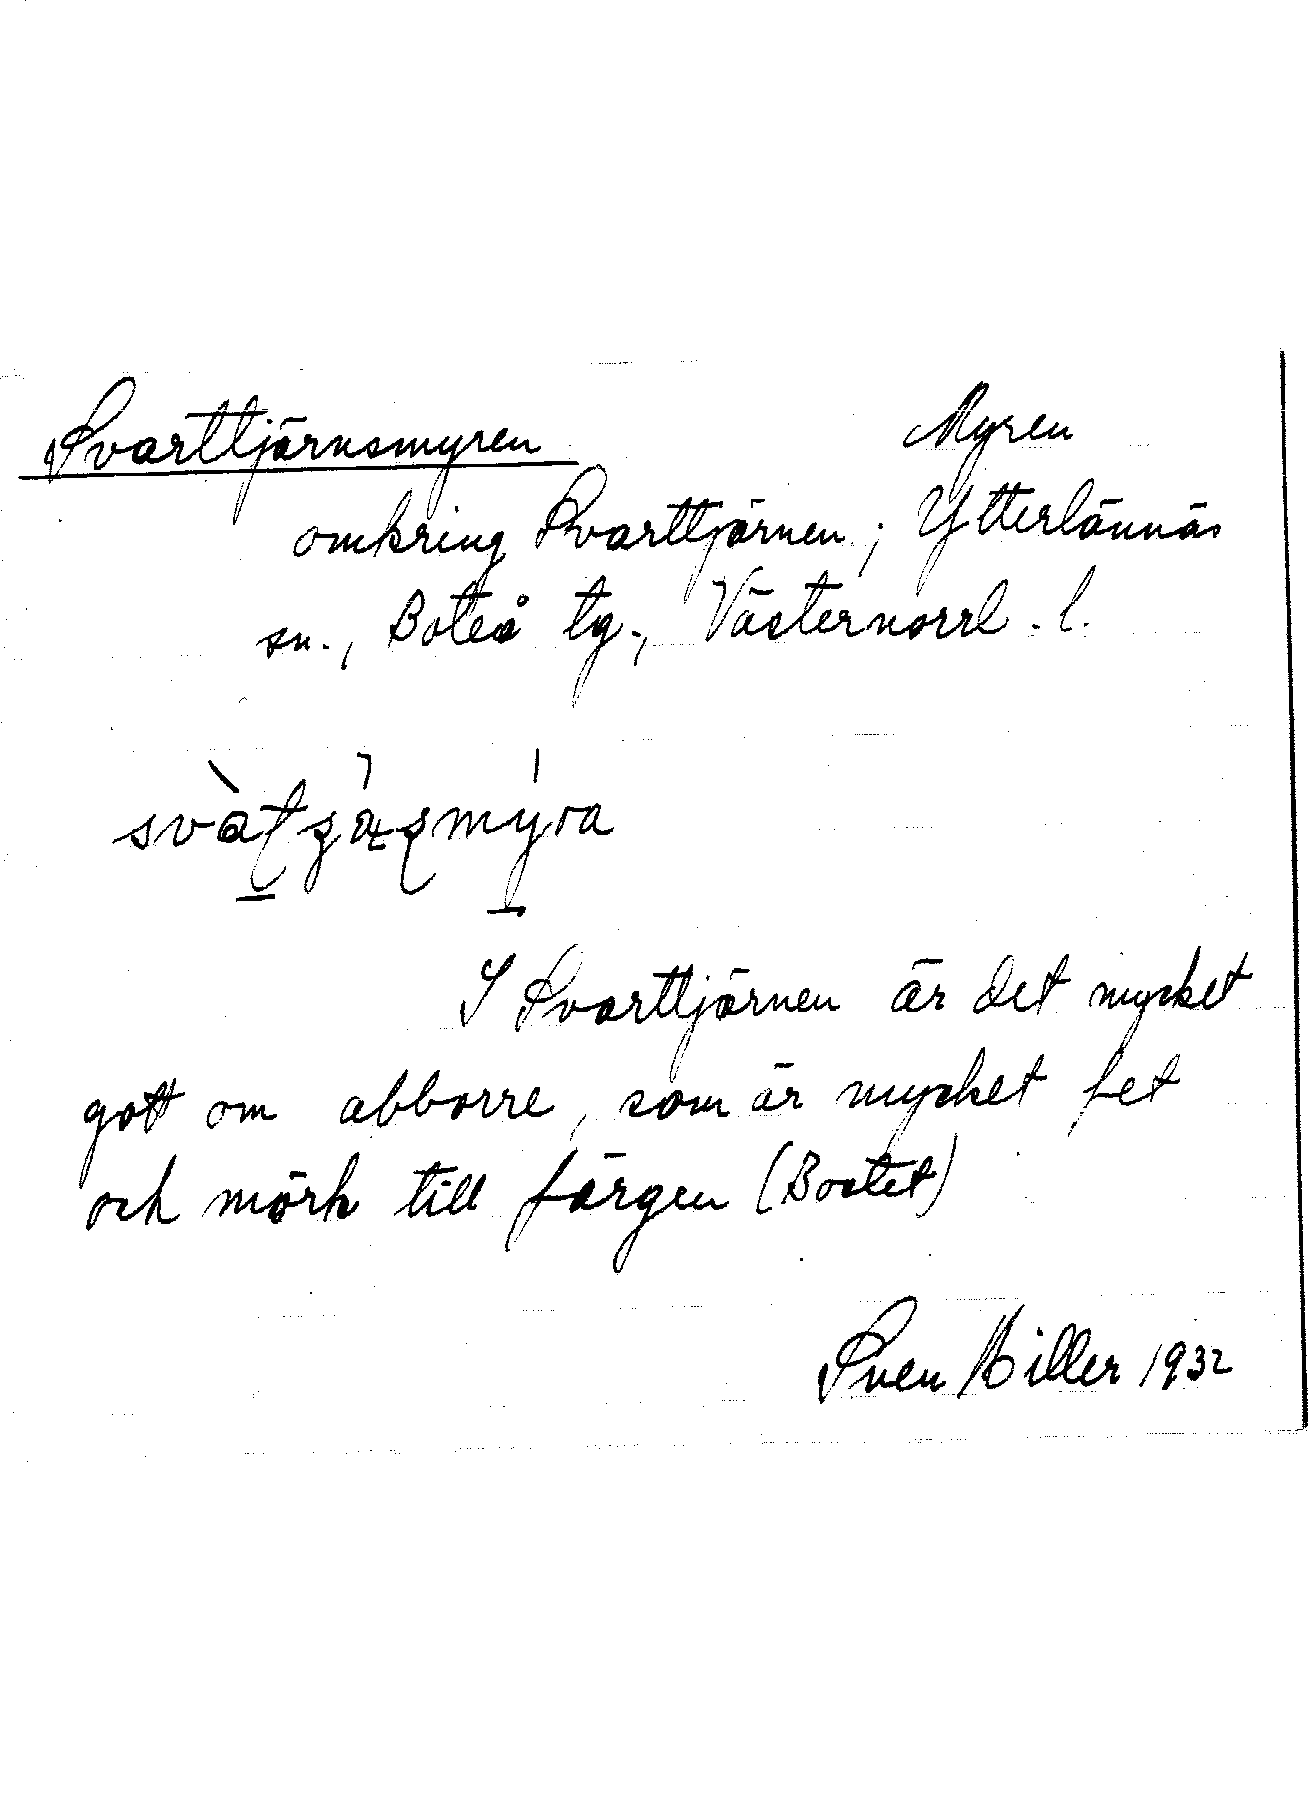 Svarttjärnsmyren Myren
omkring Svarttjärnen; Ytterlännäs
sn., Boteå tg., Västernorrl. l.
I Svarttjärnen är det mycket
gott om abborre, som är mycket fet
och mörk till färgen (Bostet)
Sven Hiller 1932